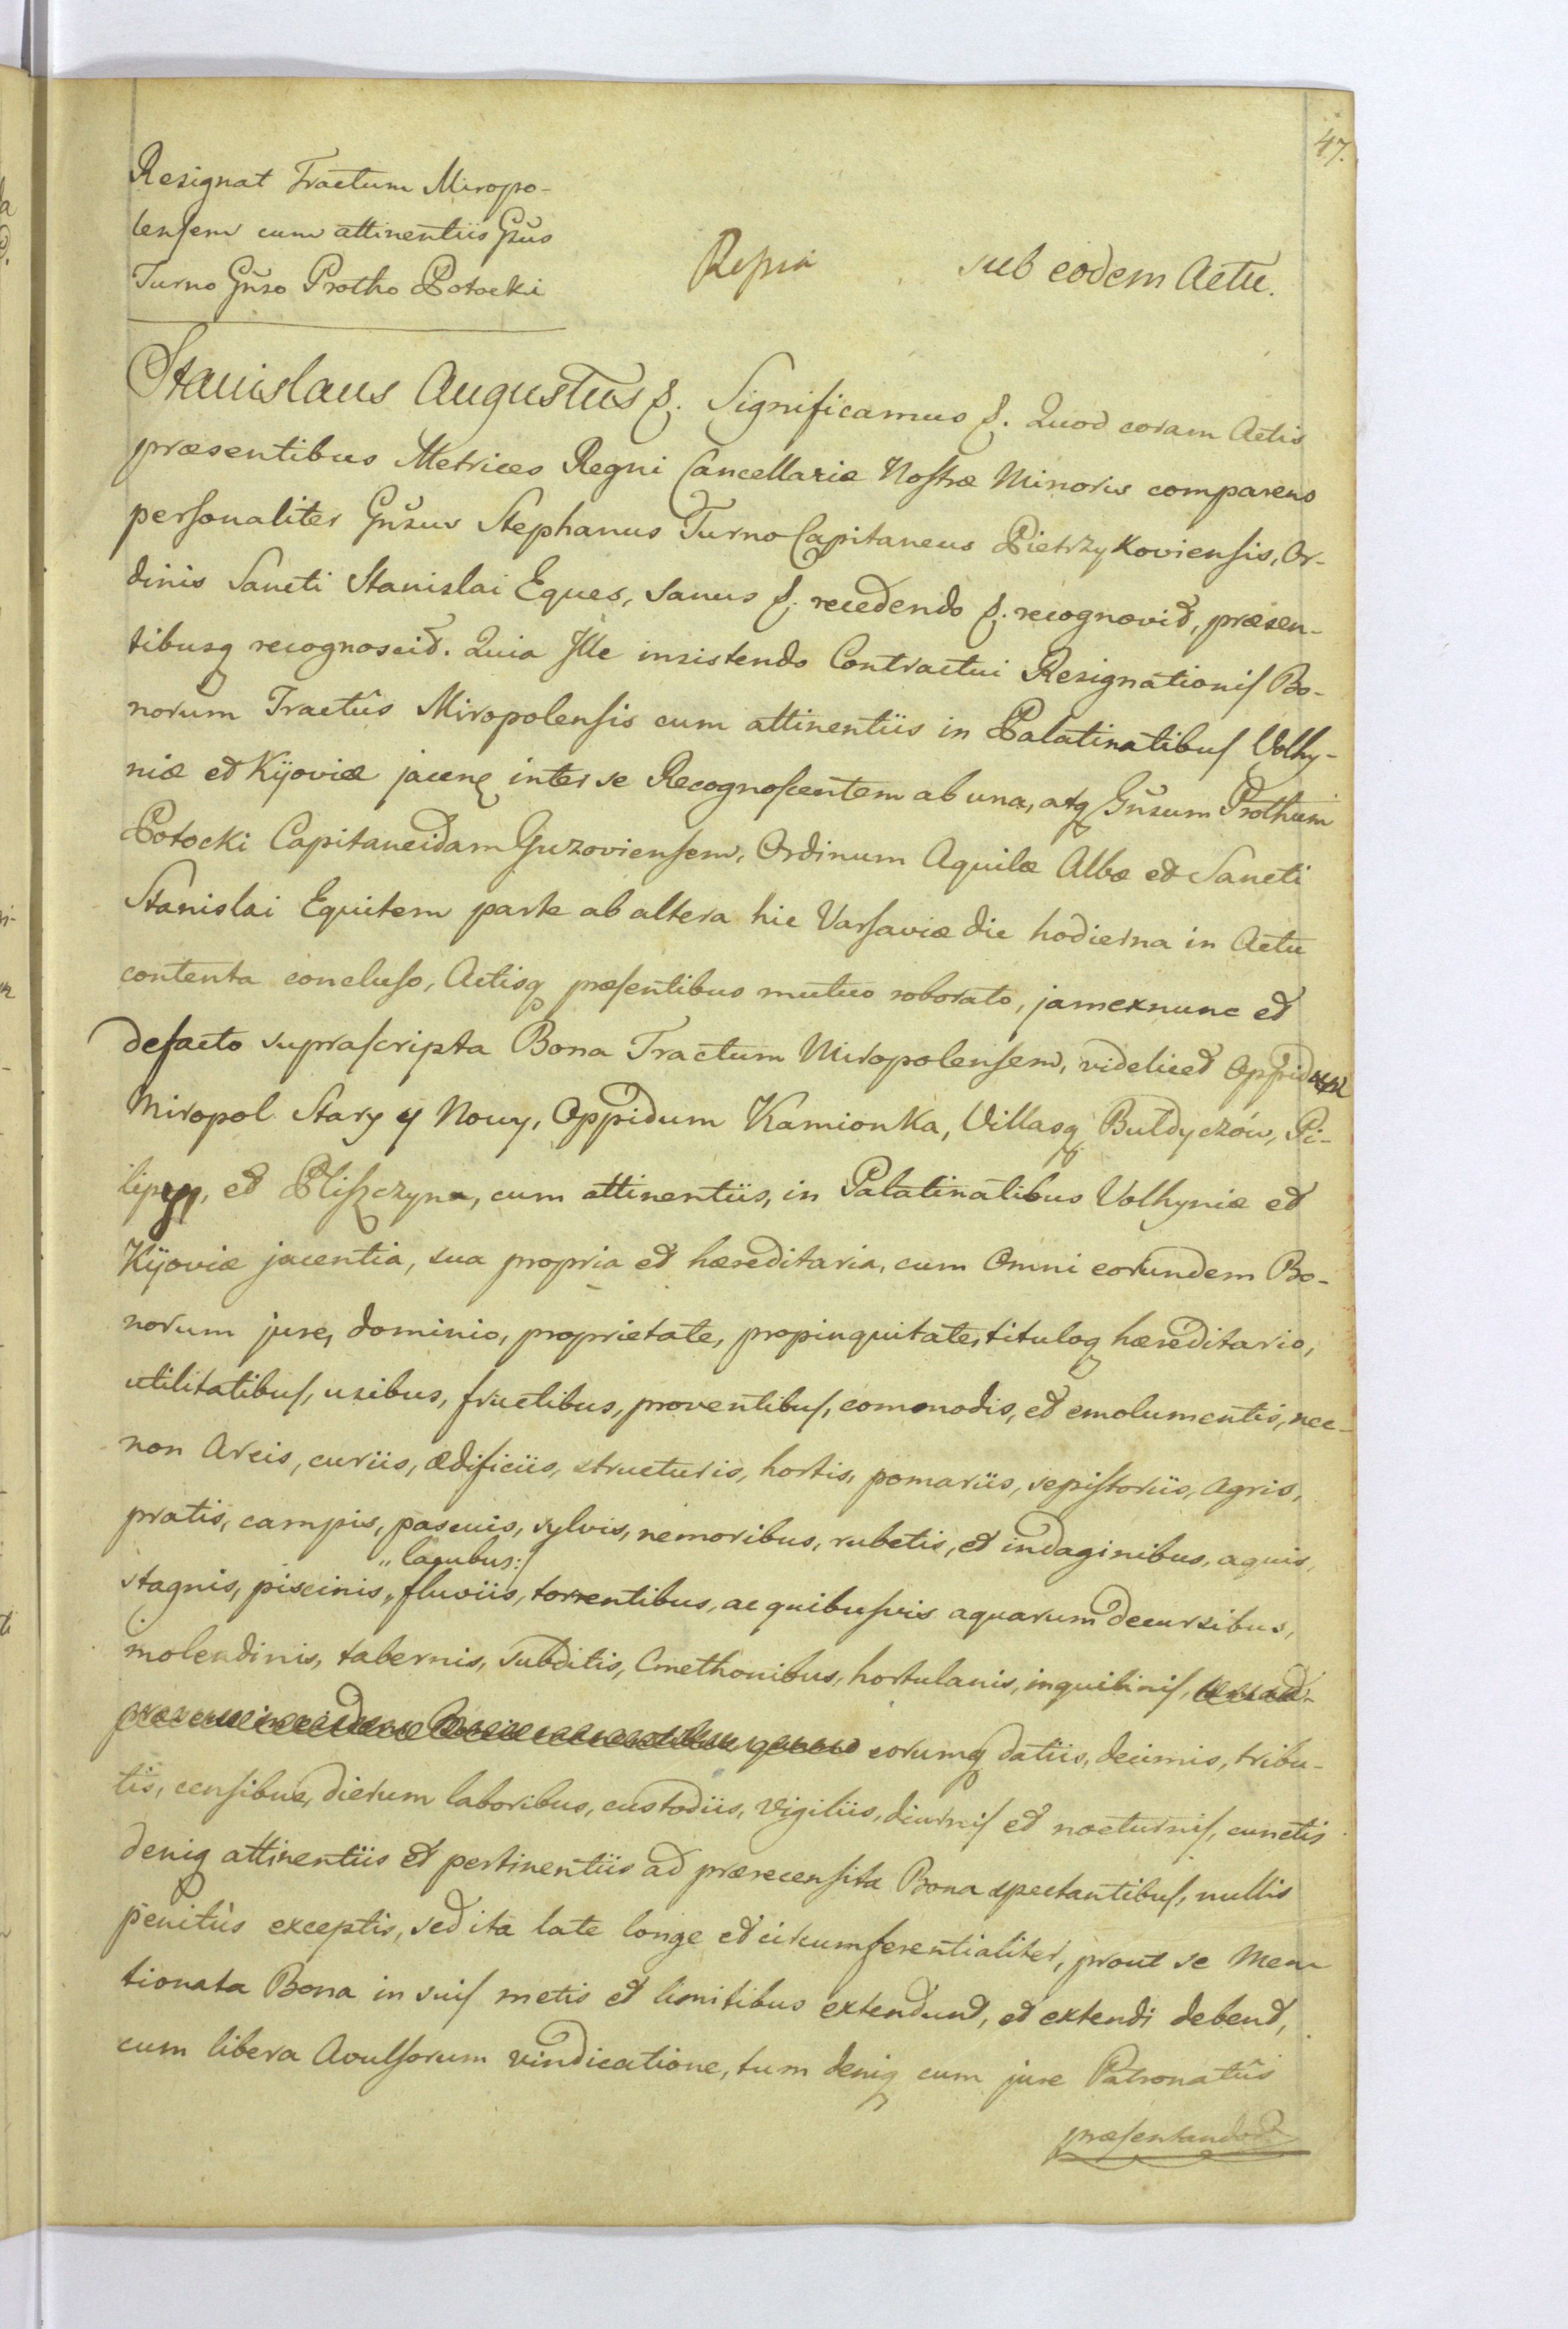 47.
Resignat Tractum Miropo-
lensem cum attinentiis Gn̄sus
Turno Gn̄so Protho Potocki
Repsa sub eodem Actu.
Stanislaus Augustus &. Significamus &. Quod coram Actis
præsentibus Metrices Regni Cancellariæ Nostræ Minoris comparens
personaliter Gn̄sus Stephanus Turno Capitaneus Pietrzykoviensis, Or-
dinis Sancti Stanislai Eques, sanus &. recedendo &. recognovit, præsen-
tibusq recognoscit. Quia Ille insistendo Contractui Resignationis Bo-
norum Tractûs Miropolensis cum attinentiis in Palatinatibus Volhy-
niæ et Kijoviæ jacenẽ inter se Recognoscentem ab una, atq Gn̄sum Prothum
Potocki Capitaneidam Guzoviensem, Ordinum Aquilæ Albæ et Sancti
Stanislai Equitem parte ab altera hic Varsaviæ die hodierna in Actu
contenta concluso, Actisq præsentibus mutuo roborato, jamexnunc et
defacto suprascripta Bona Tractum Miropolensem, videlicet Oppidum
Miropol Stary y Nowy, Oppidum Kamionka, Villasq Buldyczów, Pi-
lipy, et Pliszczyna, cum attinentiis, in Palatinatibus Volhyniæ et
Kijoviæ jacentia, sua propria et hæreditaria, cum Omni eorundem Bo-
norum jure, dominio, proprietate, propinquitate, tituloq hæreditario,
utilitatibus, usibus, fructibus, proventibus, commodis, et emolumentis, nec-
non Areis, curiis, ædificiis, structuris, hortis, pomariis, sepistoriis, agris,
pratis, campis, pascuis, sylvis, nemoribus, rubetis, et indaginibus, aquis,
„lacubus:/
stagnis, piscinis„ fluviis, torrentibus, ac quibusvis aquarum decursibus,
molendinis, tabernis, subditis, Cmethonibus, hortulanis, inquilinis,
eorumq datiis, decimis, tribu-
tis, censibus, dierum laboribus, custodiis, vigiliis, diurnis et nocturnis, cunctis
deniq attinentiis et pertinentiis ad prærecensita Bona spectantibus, nullis
penitùs exceptis, sed ita late longe et circumferentialiter, prout se Men
tionata Bona in suis metis et limitibus extendunt, et extendi debent,
cum libera Avulsorum vindicatione, tum deniq cum jure Patronatûs